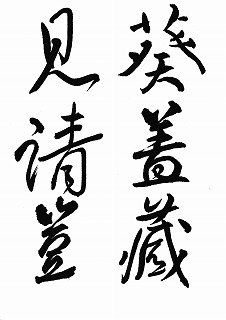 葵盖藏
見請豈